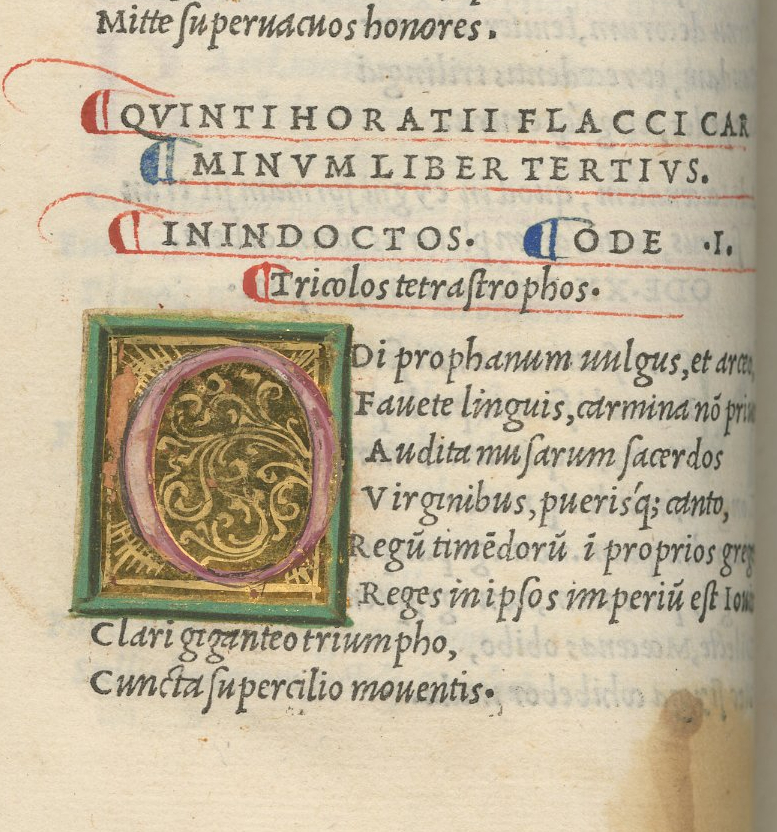 Mitte ſuperuacuos honores.
QVINTI HORATII FLACCI CAR
MINVM LIBER TERTIVS.
IN INDOCTOS. ODE .I.
Tricolos tetraſtrophos.
ODi prophanum uulgus, et arceo,
Fauete linguis, carmina nō
Audita muſarum ſacerdos
Virginibus, pueriśq; canto,
Regū timēdorū ī proprios
Reges in ipſos imperiū eſt
Clari giganteo triumpho,
Cuncta ſupercilio mouentis.